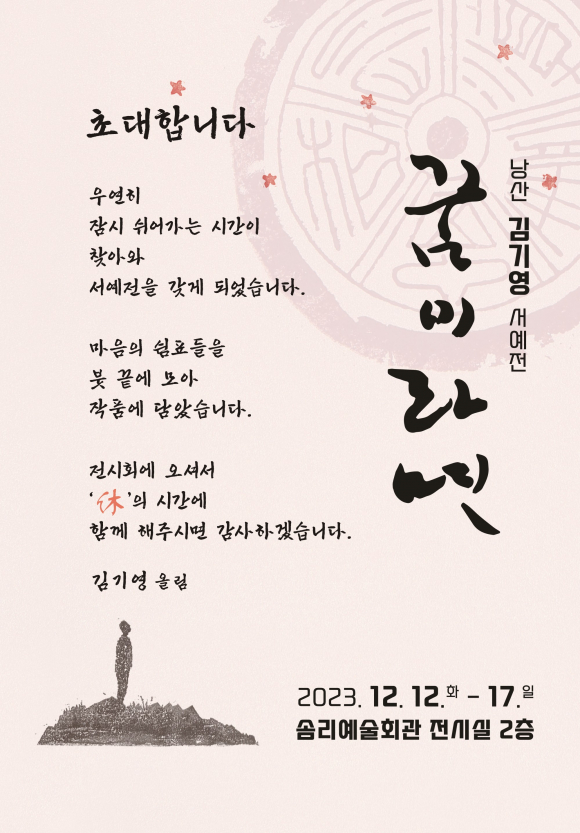 초대합니다
우연히
잠시 쉬어가는 시간이
찾아와
서예전을 갖게 되었습니다.
마음의 쉼표들을
붓 끝에 모아
작품에 담았습니다.
전시회에 오셔서
‘休’의 시간에
함께 해주시면 감사하겠습니다.
김기영 올림
꿈이라면
낭산 김기영 서예전
2023. 12. 12.화 – 17.일
솜리예술회관 전시실 2층